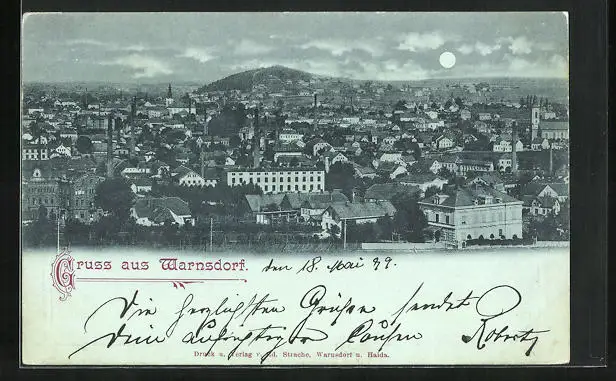 Gruss aus Warnsdorf. den 18. Mai 99.
Die herzlichsten Grüße sendet
Dein aufrichtiger
Druck u. Verlag v. Ed. Strache, Warnsdorf u. Haida.